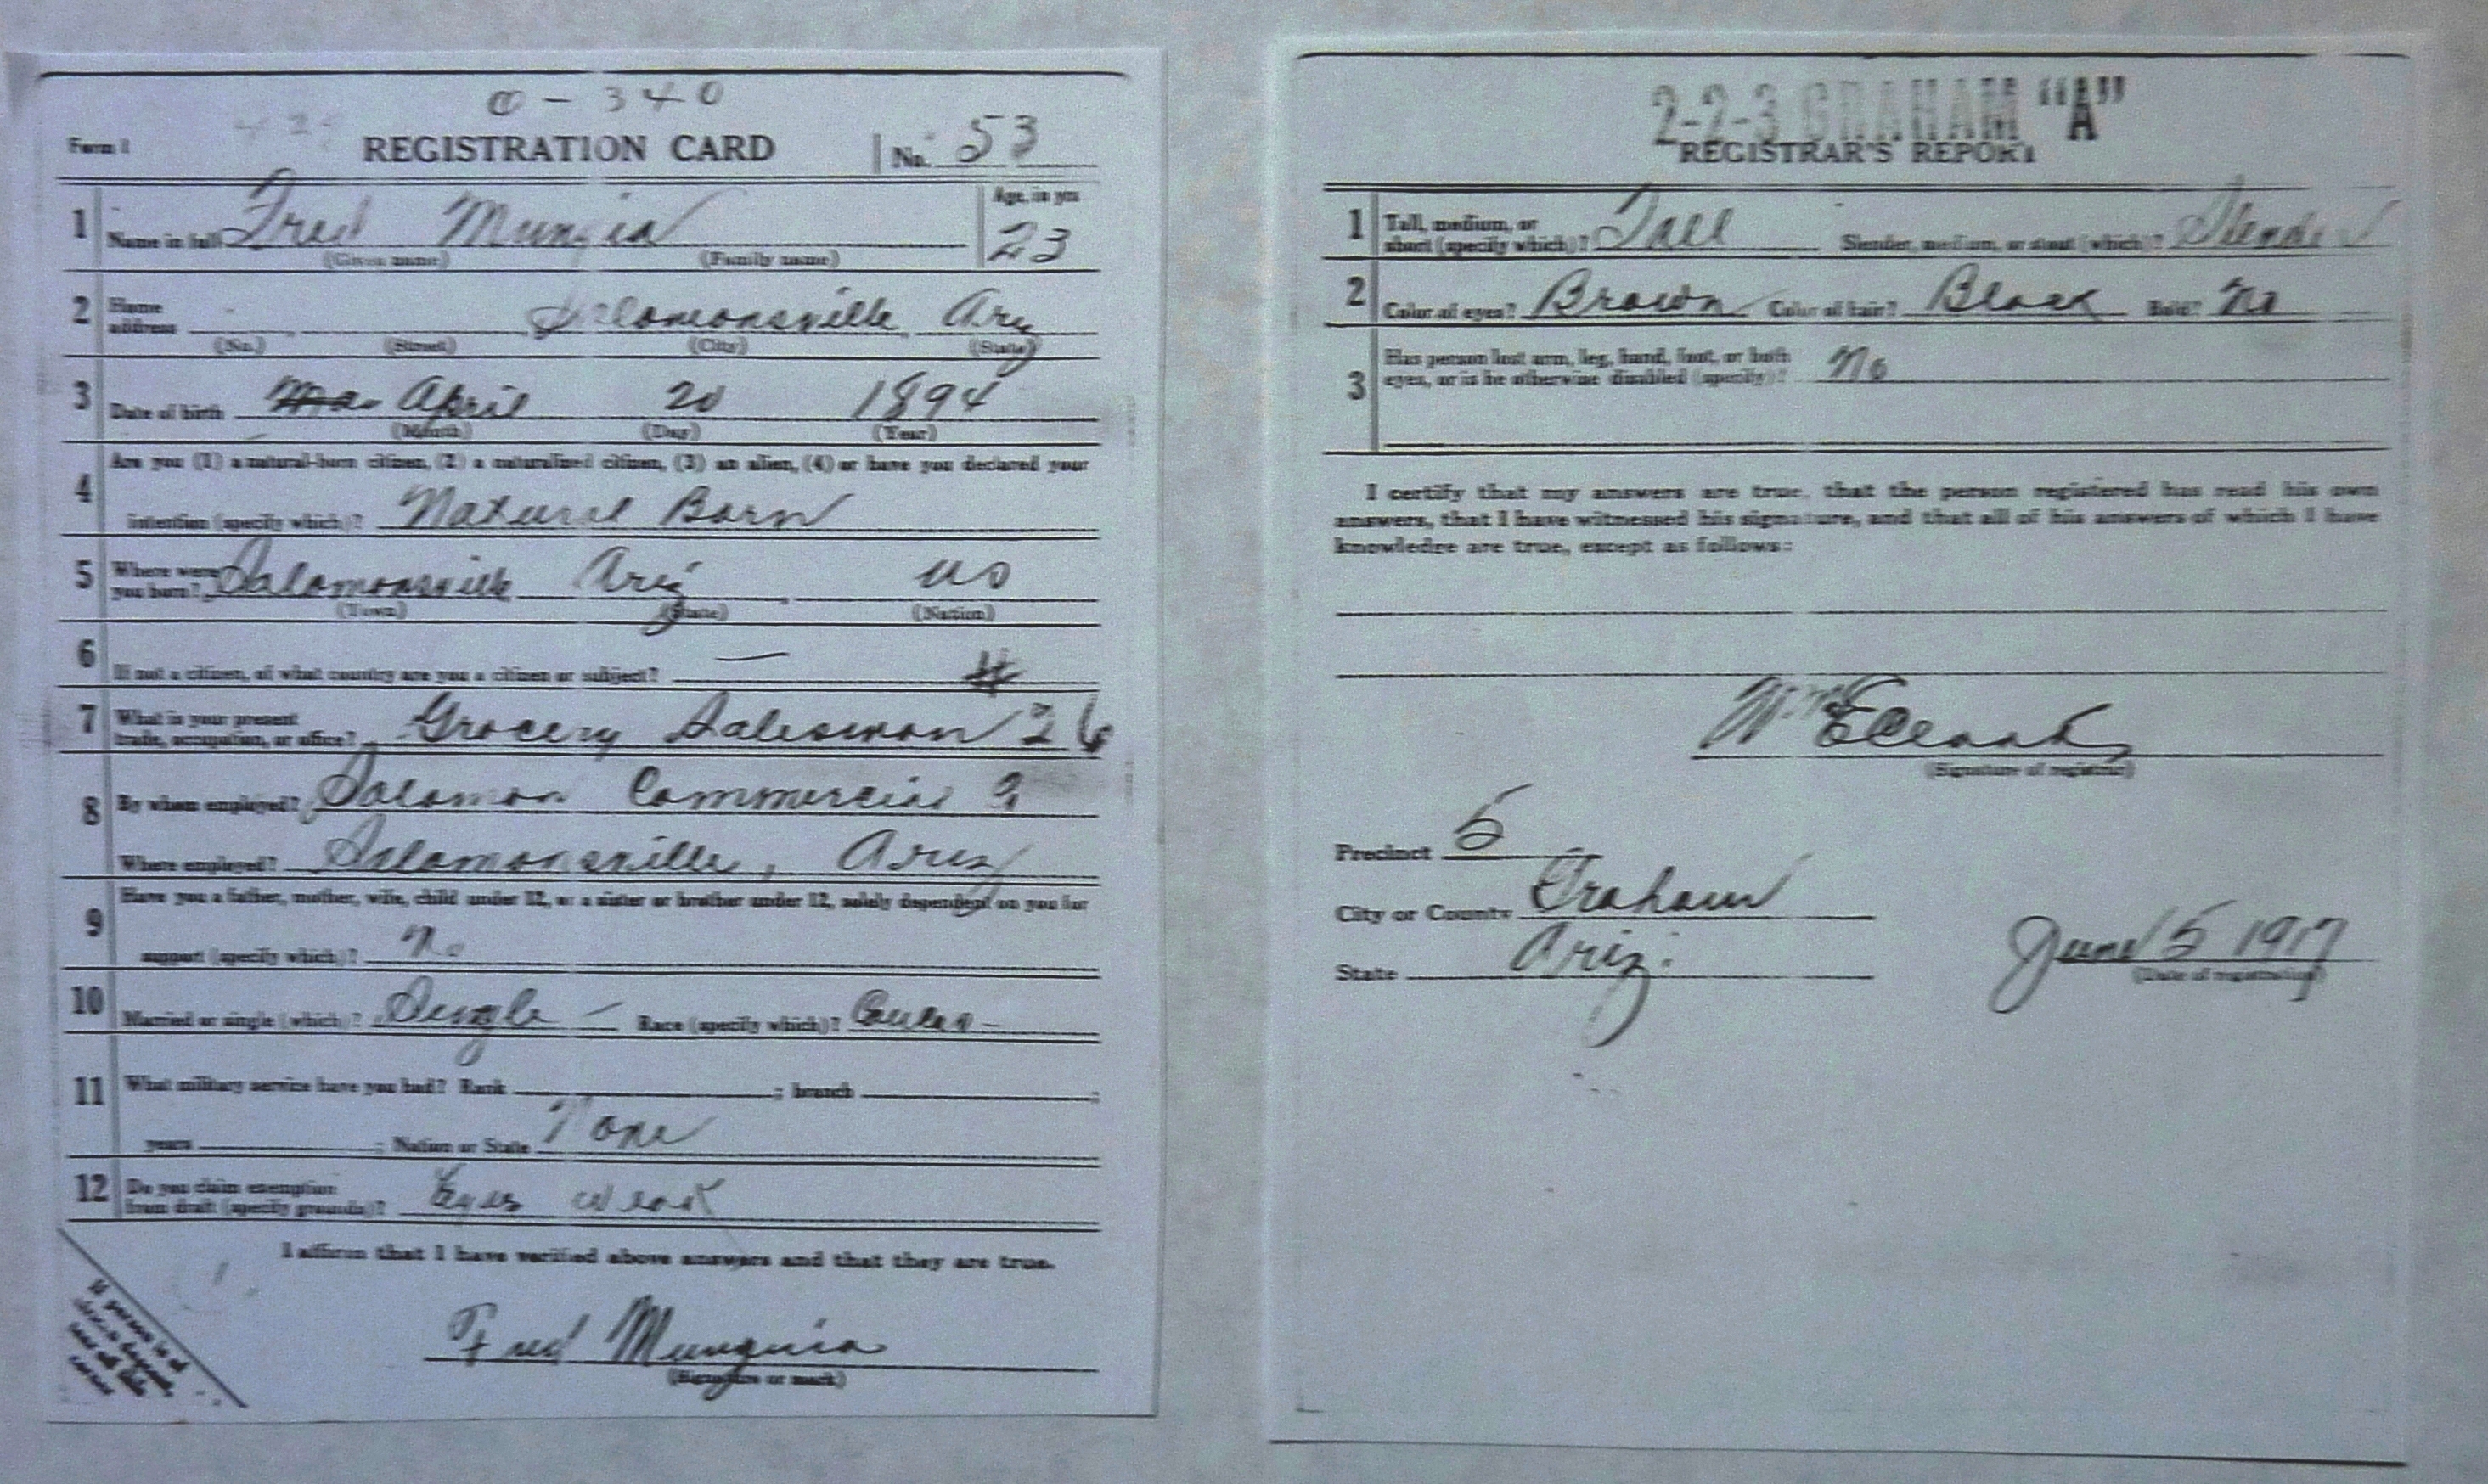 0 - 340
Form 1 REGISTRATION CARD No. 53
1 Name in full Fred Mungia Age, in yrs 23
(Given name) (Family name)
2 Home address Solomonsville Ariz
(No.) (Street) (City) (State)
3 Date of birth April 20 1894
(Month) (Day) (Year)
4 Are you (1) a natural-born citizen, (2) a naturalized citizen, (3) an alien, (4) or have you declared your
intention (specify which)? Natural Born
5 Where were you born? Solomonsville Ariz US
(Town) (State) (Nation)
6 If not a citizen, of what country are you a citizen or subject? —
7 What is your present trade, occupation, or office? Grocery Salesman 26
8 By whom employed? Solomon Commercial
Where employed? Solomonsville, Ariz
9 Have you a father, mother, wife, child under 12, or a sister or brother under 12, solely dependent on you for
support (specify which)? No
10 Married or single (which)? Single — Race (specify which)?
11 What military service have you had? Rank ; branch ;
years ; Nation or State None
12 Do you claim exemption from draft (specify grounds)? Eyes Weak
I affirm that I have verified above answers and that they are true.
Fred Munguia
(Signature or mark)
If person is of
2-2-3 GRAHAM "A"
REGISTRAR'S REPORT
1 Tall, medium, or short (specify which)? Tall Slender, medium, or stout (which)? Slender
2 Color of eyes? Brown Color of hair? Black Bald? No
3 Has person lost arm, leg, hand, foot, or both
eyes, or is he otherwise disabled (specify)? No
I certify that my answers are true, that the person registered has read his own
answers, that I have witnessed his signature, and that all of his answers of which I have
knowledge are true, except as follows:
(Signature of registrar)
Precinct 5
City or County Graham
State Ariz. June 5 1917
(Date of registration)